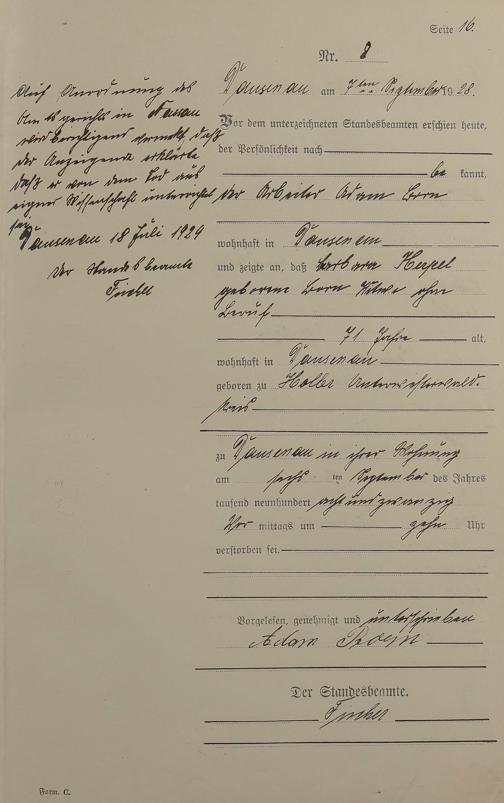 Seite 16.
Nr. 8
Dausenau am 7ten September 1928.
Vor dem unterzeichneten Standesbeamten erschien heute,
der Persönlichkeit nach
be kannt,
der Arbeiter Adam Born
wohnhaft in Dausenau
und zeigte an, daß Barbara Herpel
geborene Born Witwe ohne
Beruf
71 Jahre alt,
wohnhaft in Dausenau
geboren zu Holler Unterwesterwald-
kreis
zu Dausenau in ihrer Wohnung
am sechs ten September des Jahres
tausend neunhundert achtundzwanzig
Vor mittags um zehn Uhr
verstorben sei.
Vorgelesen, genehmigt und unterschrieben
Adam Born
Der Standesbeamte.
Auf Anordnung des
Amtsgerichts in Nassau
wird berichtigend vermerkt, daß
der Anzeigende erklärte
daß er von dem Tod aus
eigner Wissenschaft unterrichtet
sei.
Dausenau 18 Juli 1929
Der Standesbeamte
Form. C.